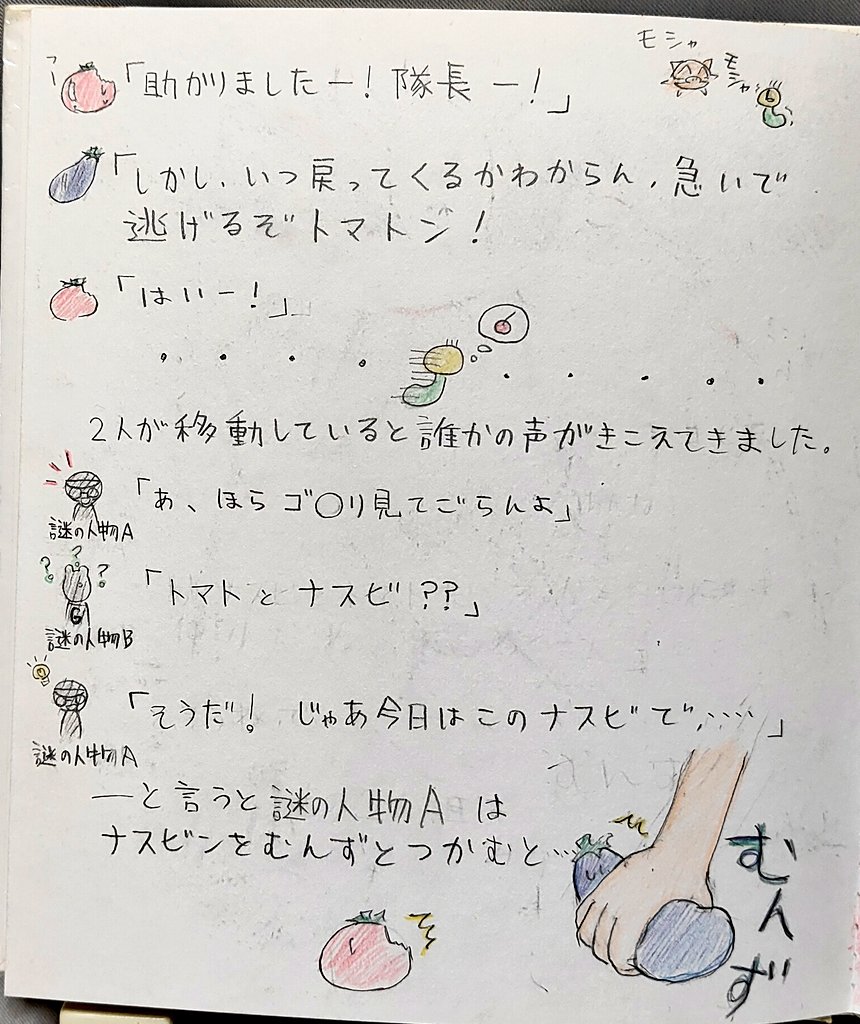 モシャ
モシャ
「助かりましたー！隊長ー！」
「しかし、いつ戻ってくるかわからん、急いで
逃げるぞトマトン！
「はいー！」
2人が移動していると誰かの声がきこえてきました。
「あ、ほらゴ〇リ見てごらんよ」
謎の人物A
「トマトとナスビ？？」
G
謎の人物B
「そうだ！じゃあ今日はこのナスビで、‥‥」
謎の人物A
ーと言うと謎の人物Aは
ナスビンをむんずとつかむと…
むんず